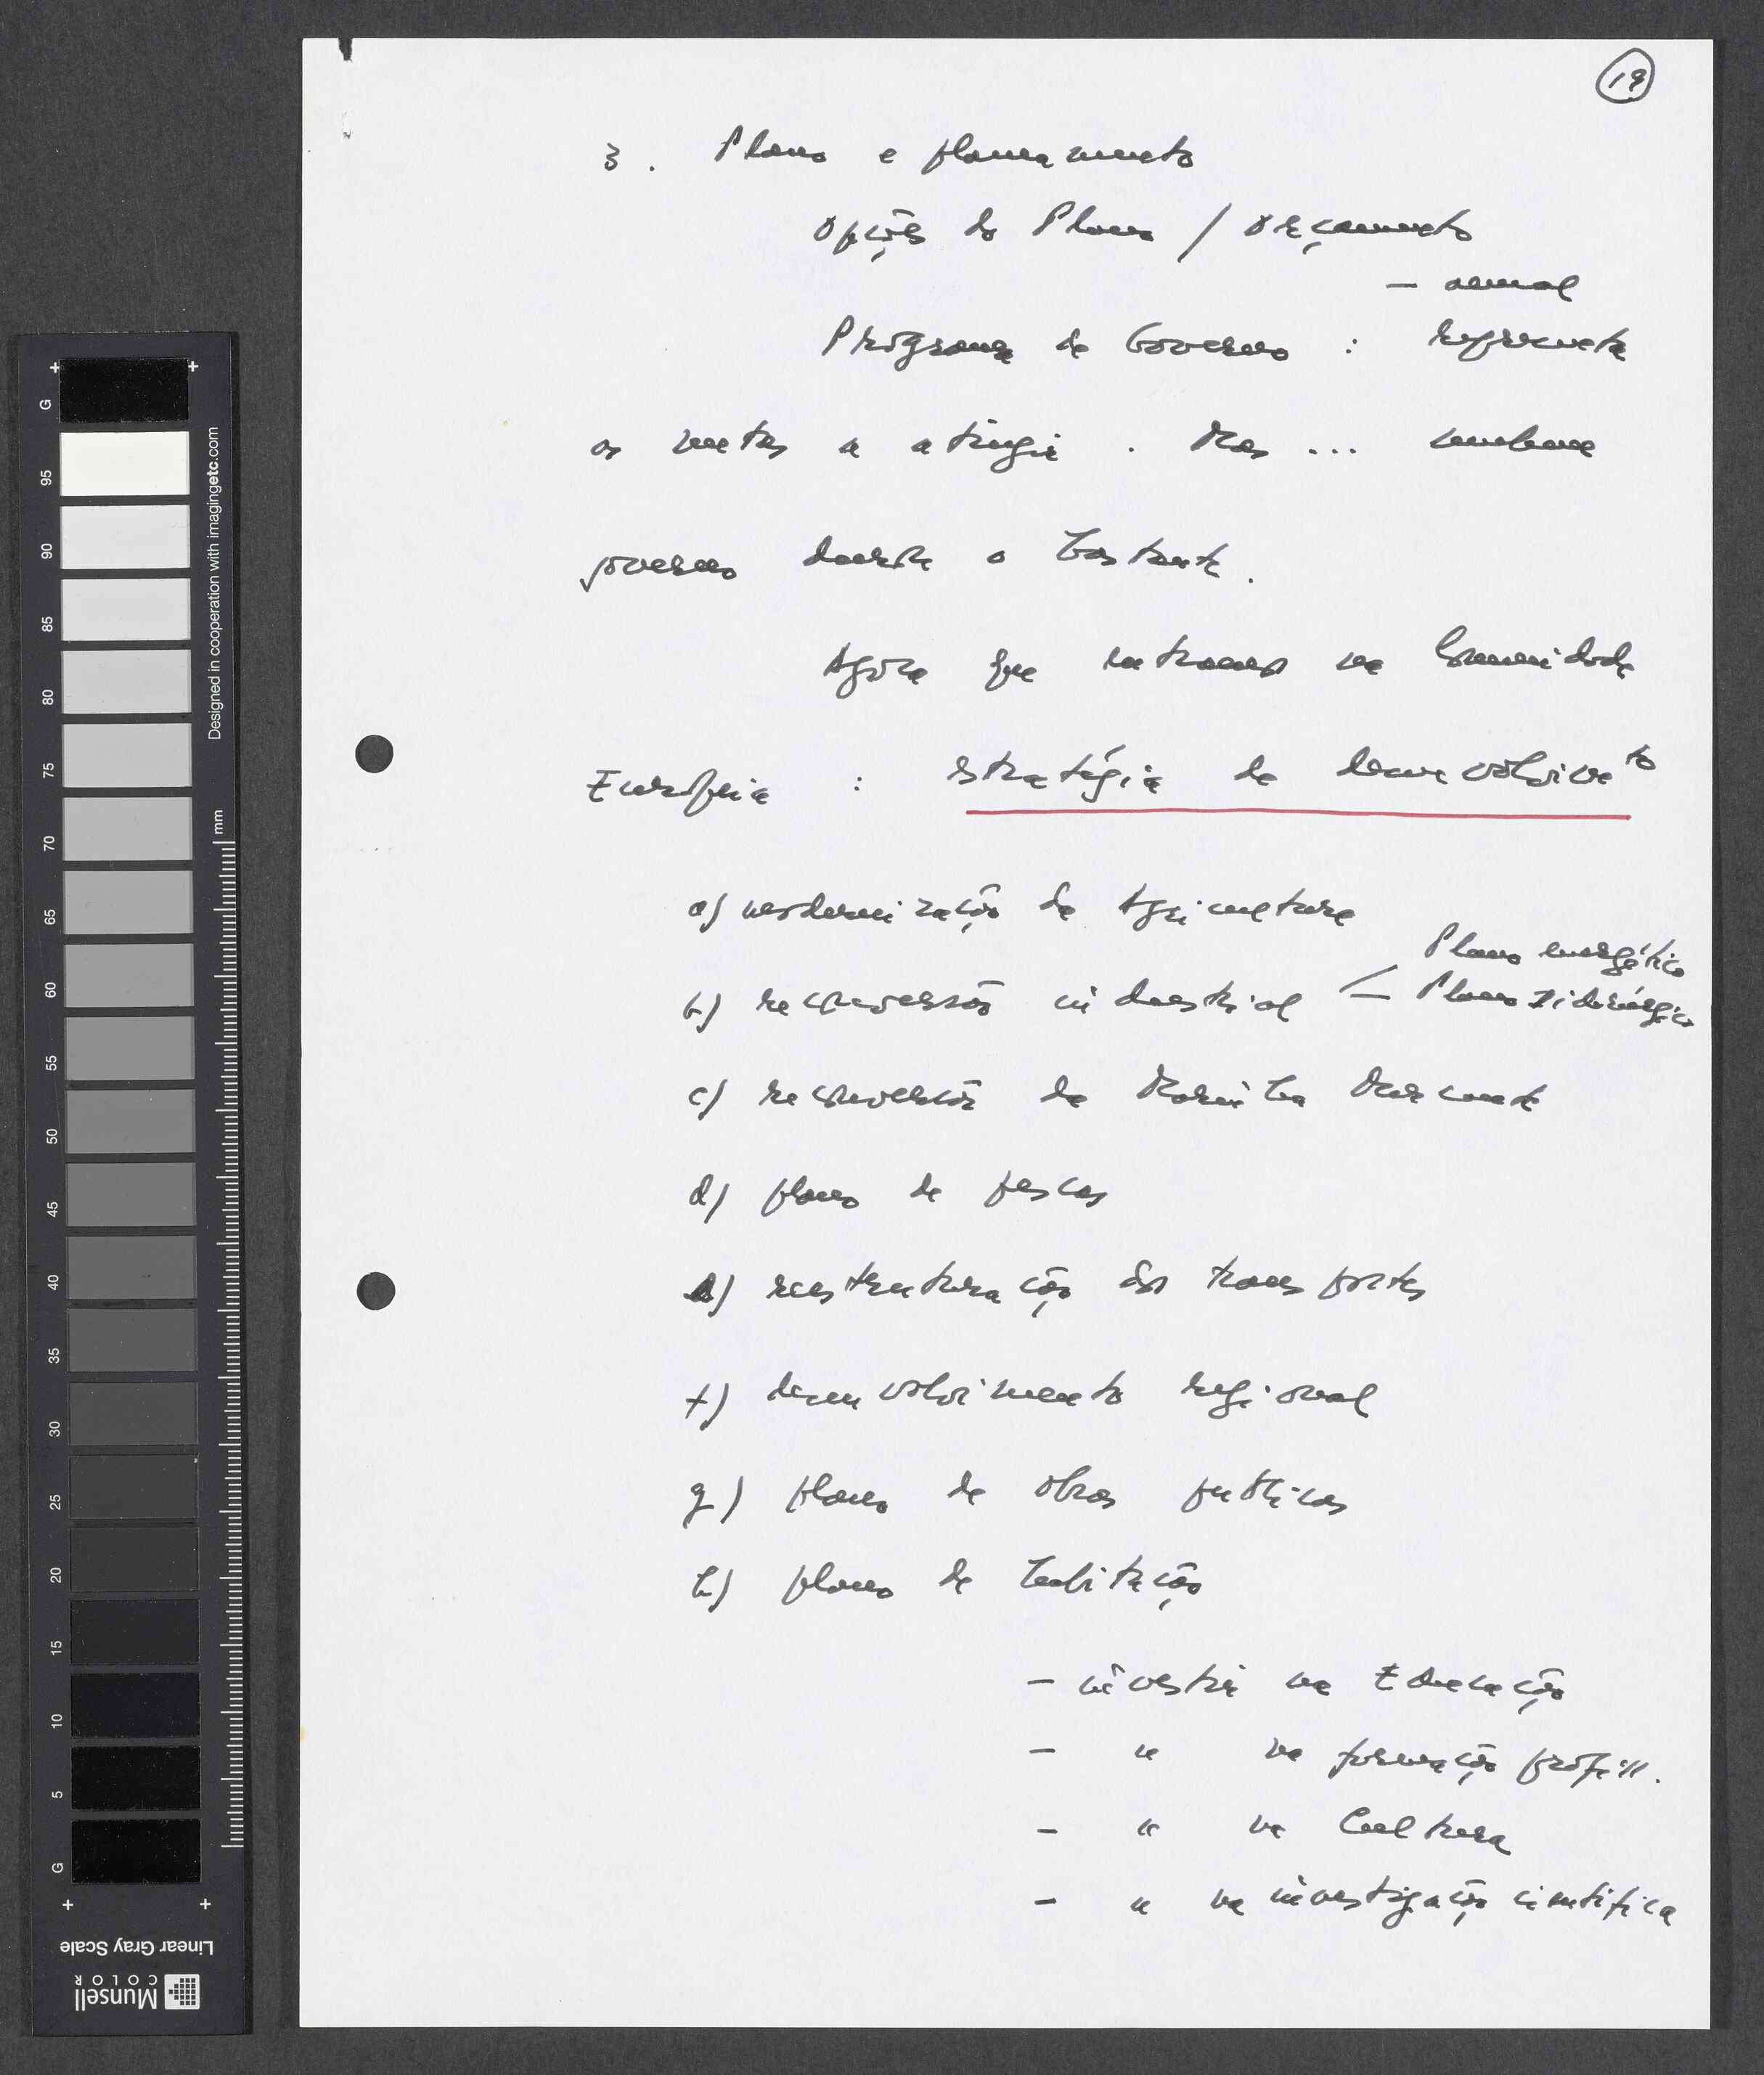 19
3. Plano e planeamento
Opções do Plano / Orçamento
— anual
Programa de Governo : representa
as metas a atingir . Mas ... nenhum
governo durou o bastante.
Agora que entramos na Comunidade
Europeia : estratégia de desenvolvimto
a) modernização da Agricultura
Plano energético
b) reconversão industrial — Plano Siderúrgico
c) reconversão da Marinha Mercante
d) plano de pescas
e) reestruturação dos transportes
f) desenvolvimento regional
g) plano de obras públicas
h) plano de habitação
— investir na Educação
— " na formação profiss.
— " na Cultura
— " na investigação científica
G
95
90
85
80
75
70
65
60
55
50
45
40
35
30
25
20
15
10
5
G
mm
Designed in cooperation with imagingetc.com
Linear Gray Scale
Munsell
COLOR